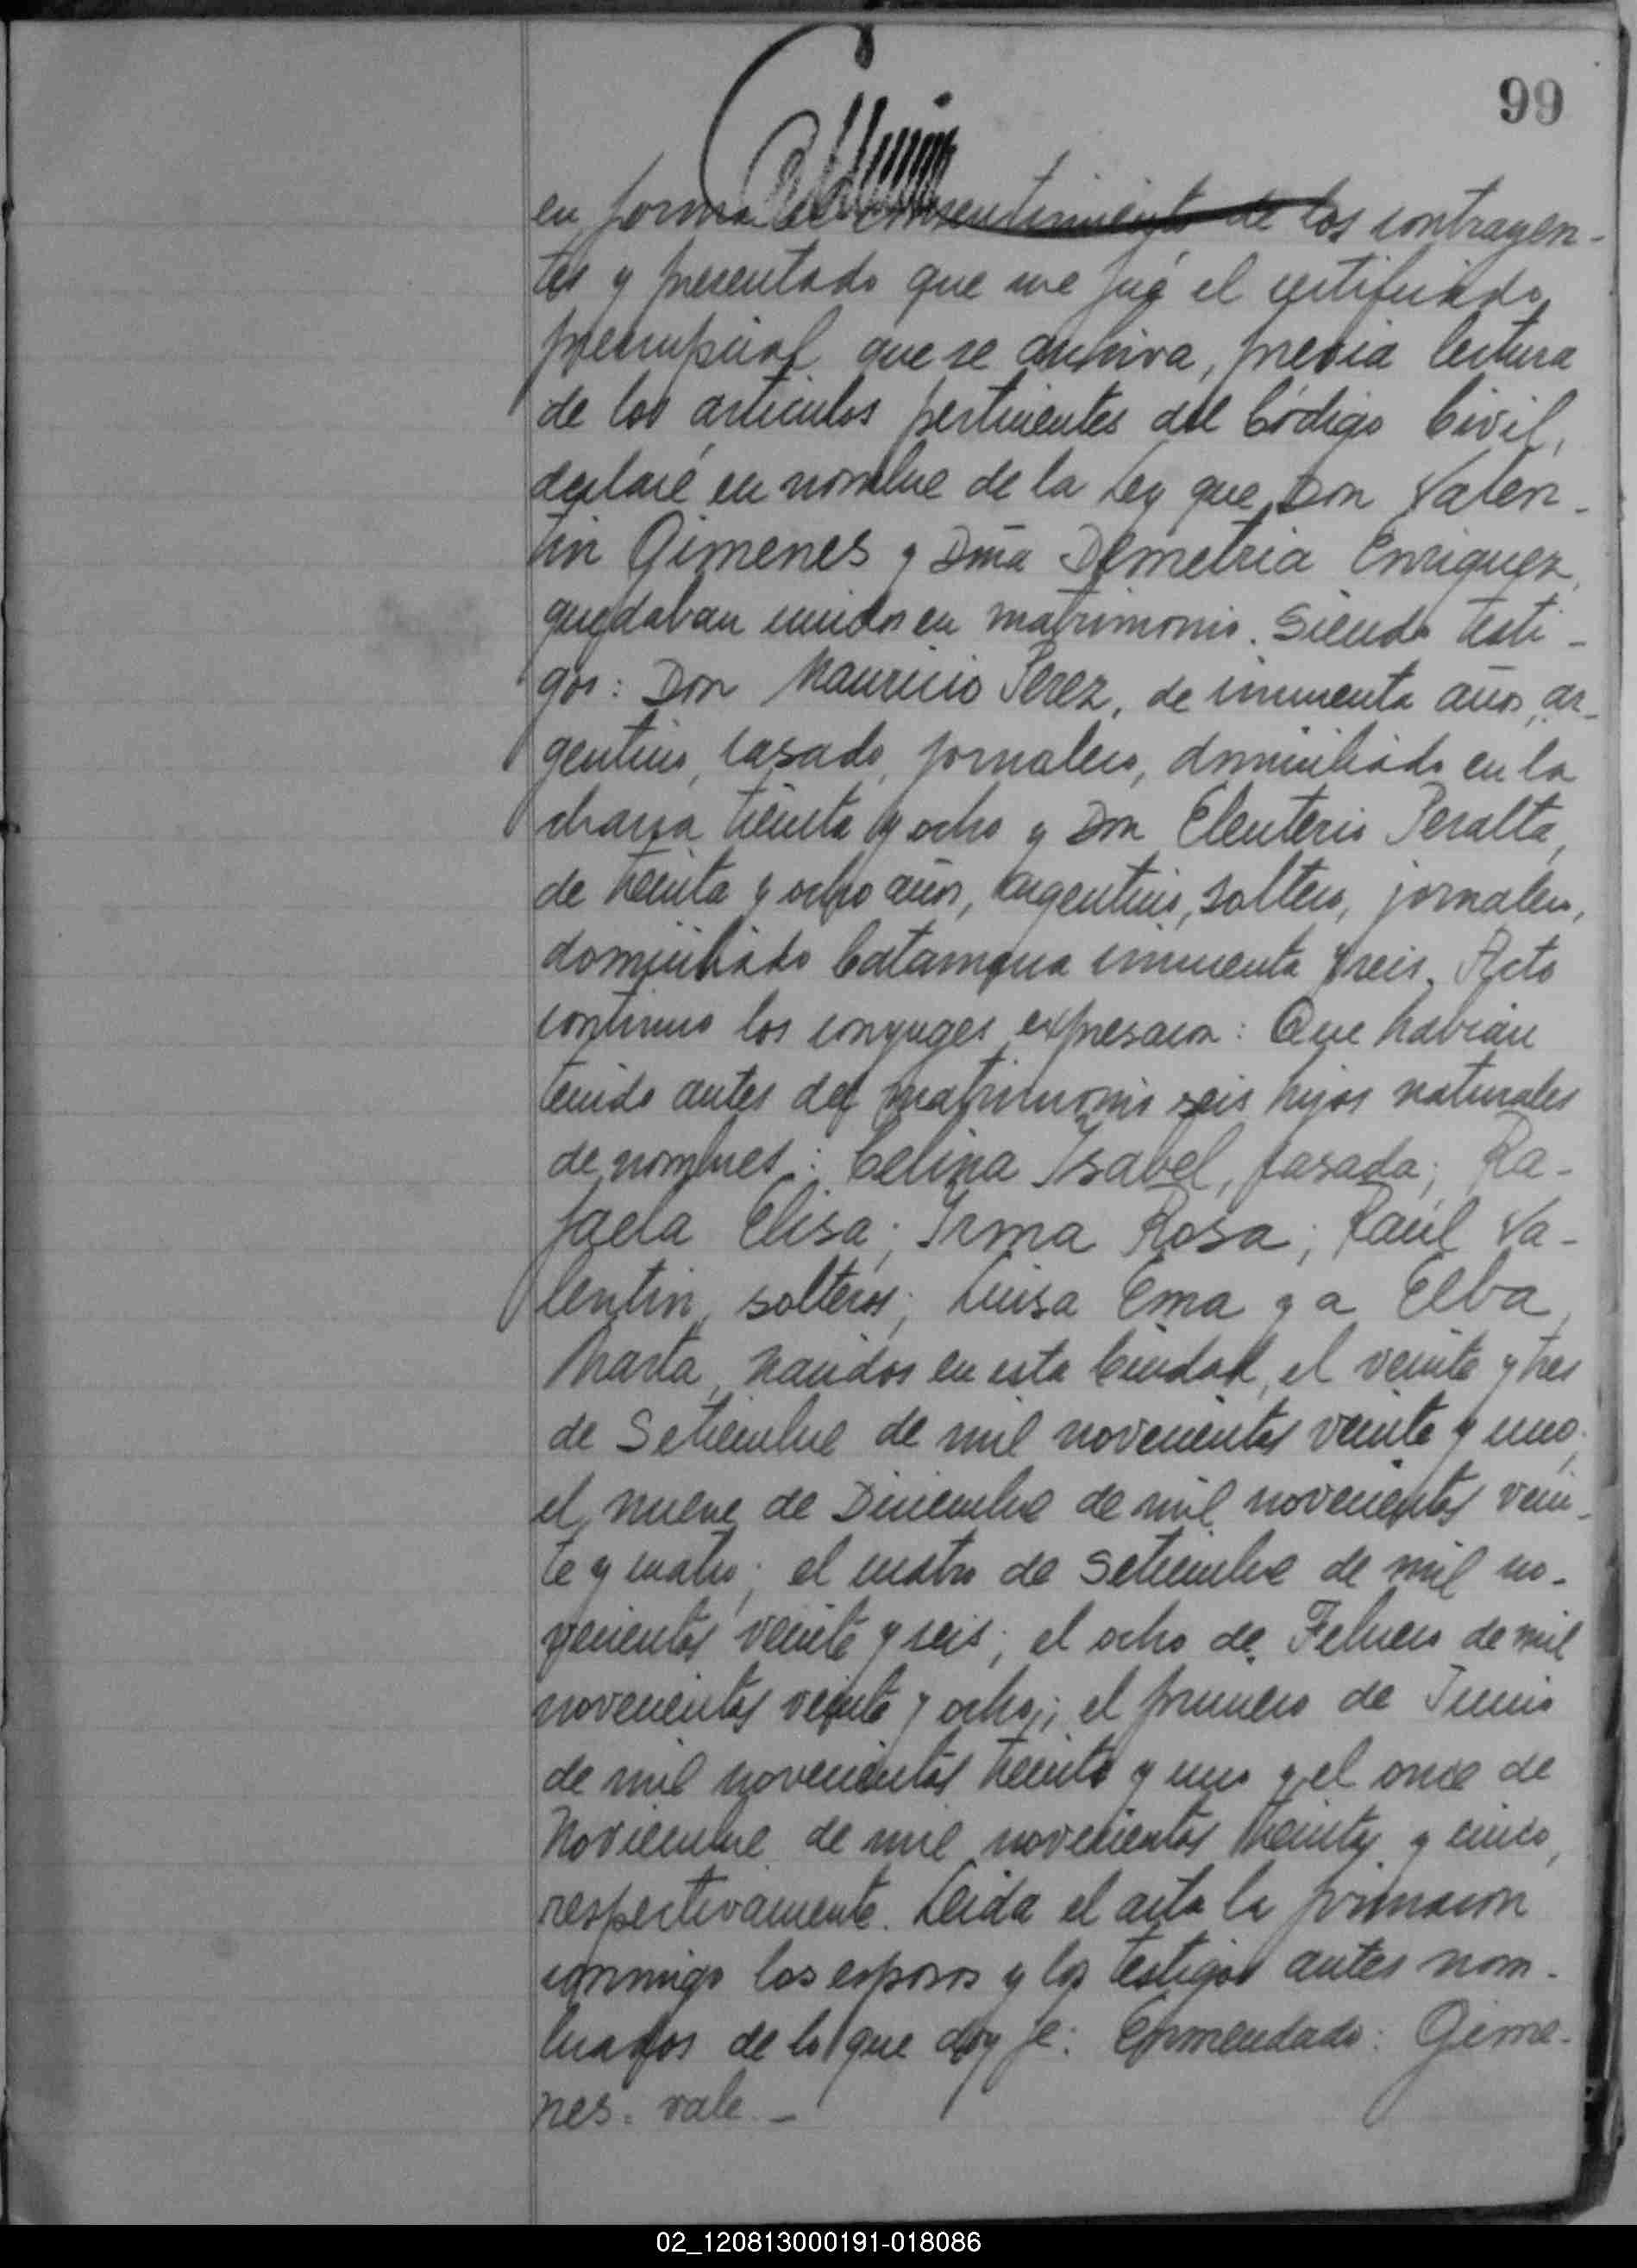 99
en forma el consentimiento de los contrayen-
tes y presentado que me fué el certificado
prenupcial que se archiva, previa lectura
de los articulos pertinentes del Código Civil,
declaré en nombre de la Ley que Don Valen-
tin Gimenes y Dña Demetria Enriquez,
quedaban unidos en matrimonio. Siendo testi-
gos: Don Mauricio Perez, de cincuenta años, ar-
gentino, casado, jornalero, domiciliado en la
chacra treinta y ocho y Don Eleuterio Peralta,
de treinta y ocho años, argentino, soltero, jornalero,
domiciliado Catamarca cincuenta y seis. Acto
continuo los conyuges expresaron: Que habian
tenido antes del matrimonio seis hijos naturales
de nombres: Celina Isabel, casada; Ra-
faela Elisa; Irma Rosa; Raúl Va-
lentin, solteros; Luisa Ema y a Elba
Marta, nacidos en esta Ciudad, el veinte y tres
de Setiembre de mil novecientos veinte y uno;
el nueve de Diciembre de mil novecientos vein-
te y cuatro; el cuatro de Setiembre de mil no-
vecientos veinte y seis; el ocho de Febrero de mil
novecientos veinte y ocho; el primero de Junio
de mil novecientos treinta y uno y el once de
Noviembre de mil novecientos treinta y cinco,
respectivamente. Leida el acta la firmaron
conmigo los esposos y los testigos antes nom-
brados de lo que doy fe: Enmendado: Gime-
nes: vale.-
02_120813000191-018086